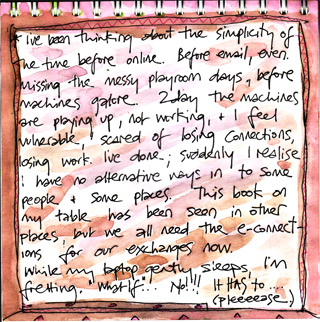 * I've been thinking about the simplicity of
the time before online. Before email, even.
Missing the messy playroom days, before
machines galore. 2day the machines
are playing up, not working, + I feel
vulnerable, scared of losing connections,
losing work I've done; suddenly I realise
I have no alternative ways in to some
people + some places. This book on
my table has been seen in other
places, but we all need the e-connect-
ions for our exchanges now.
While my laptop gently sleeps, I'm
fretting. "What if"!.. No!!! It HAS to ....
(pleeeease)